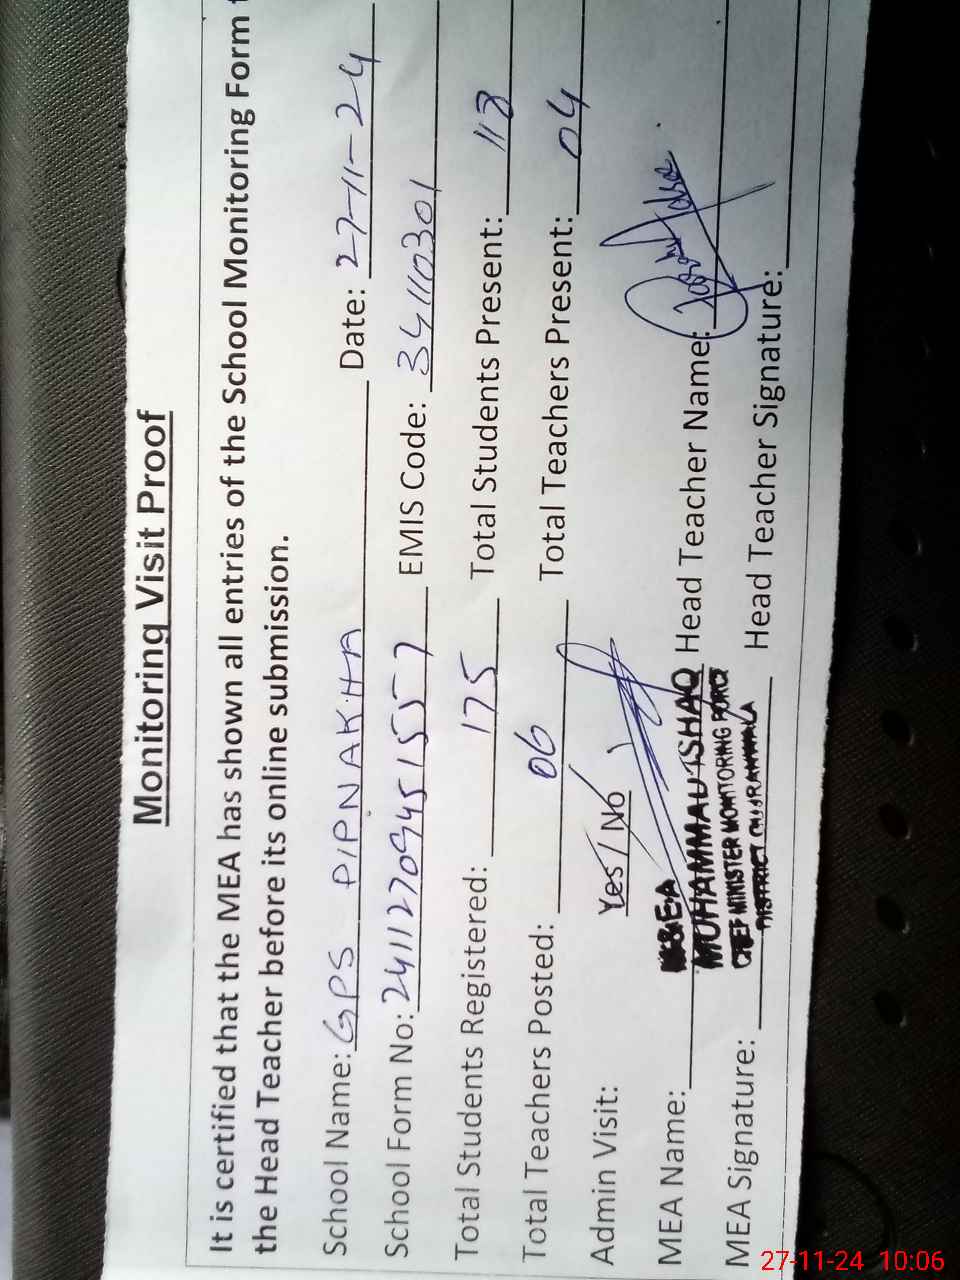 Monitoring Visit Proof
It is certified that the MEA has shown all entries of the School Monitoring Form t
the Head Teacher before its online submission.
School Name: GPS PIPNAKHA Date: 27-11-24
School Form No: 24112709451557 EMIS Code: 34110301
Total Students Registered: 175 Total Students Present: 118
Total Teachers Posted: 06 Total Teachers Present: 04
Admin Visit: Yes / No
MEA Name: MEA Head Teacher Name:
MUHAMMAD ISHAQ
CHIEF MINISTER MONITORING FORCE
DISTRICT GUJRANWALA
MEA Signature: Head Teacher Signature:
27-11-24 10:06